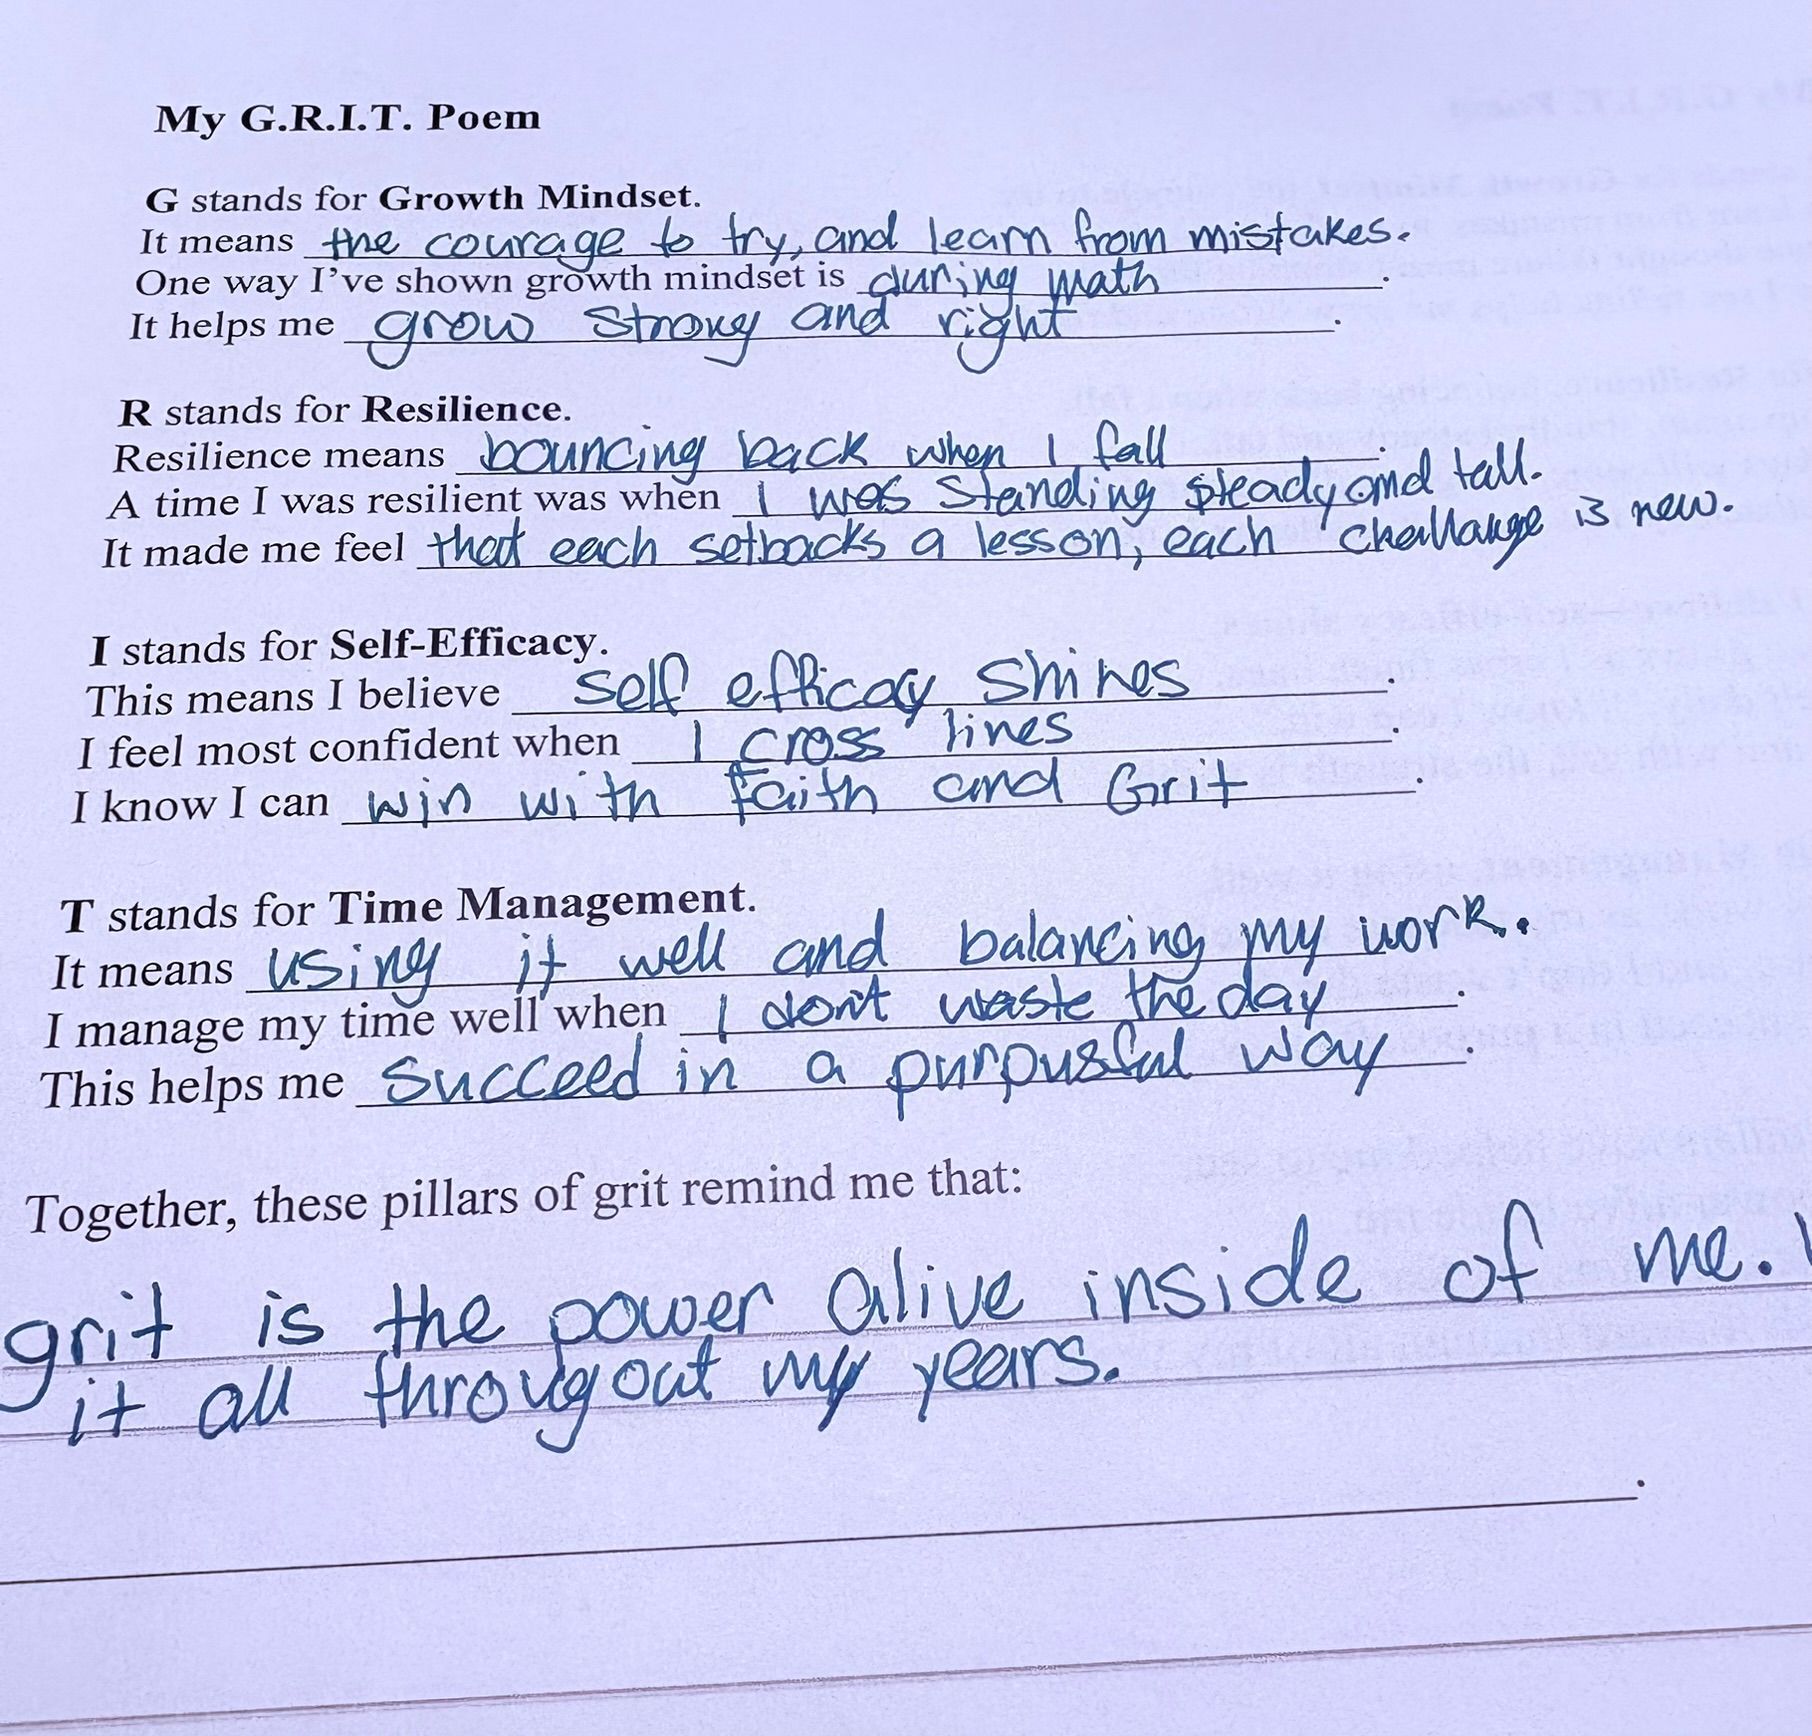 My G.R.I.T. Poem
G stands for Growth Mindset.
It means the courage to try, and learn from mistakes.
One way I've shown growth mindset is during math.
It helps me grow strong and right.
R stands for Resilience.
Resilience means bouncing back when I fall.
A time I was resilient was when I was standing steady and tall.
It made me feel that each setbacks a lesson, each challange is new.
I stands for Self-Efficacy.
This means I believe self efficacy shines.
I feel most confident when I cross lines.
I know I can win with faith and Grit.
T stands for Time Management.
It means using it well and balancing my work.
I manage my time well when I don't waste the day.
This helps me succeed in a purpusful way.
Together, these pillars of grit remind me that:
grit is the power alive inside of me.
it all througout my years.